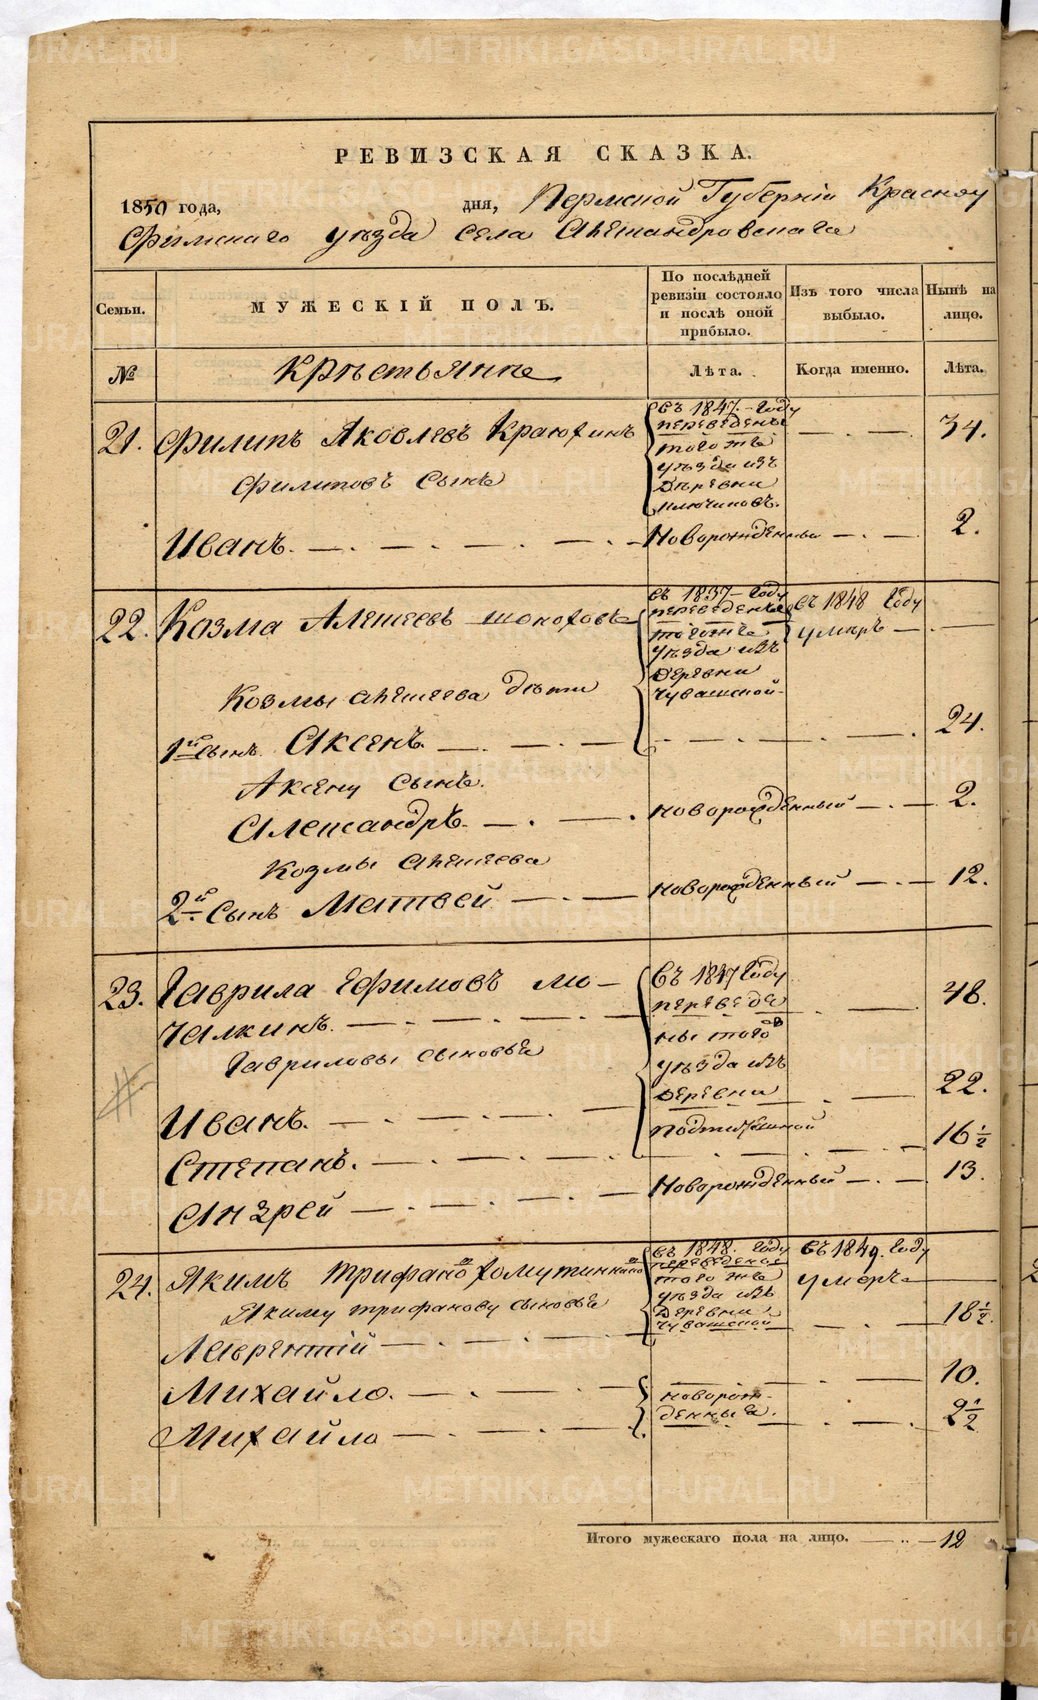 РЕВИЗСКАЯ СКАЗКА.
1850 года, дня, Пермской Губерніи Красноу
Фимскаго уѣзда села Александровскаго
Семьи. МУЖЕСКІЙ ПОЛЪ. По послѣдней ревизіи состояло и послѣ оной прибыло. Изъ того числа выбыло. Нынѣ на лицо.
№ Крестьяне Лѣта. Когда именно. Лѣта.
21. Филипъ Яковлевъ Съ 1847 Году переведенъ того же уѣзда изъ деревни 34.
Филиповъ Сынъ
Иванъ. Новорожденный 2.
22. Козма Алексеевъ Съ 1837 Году переведены того же уѣзда изъ деревни Чувашской Съ 1848 Году умеръ
Козмы Алексеева дѣти
1й Сынъ Аксенъ. 24.
Аксену Сынъ.
Александръ. новорожденный 2.
Козмы Алексеева
2й Сынъ Матвей новорожденный 12.
23. Гаврила Ефимовъ Мо-
чалкинъ. Съ 1847 Году переведены того уѣзда изъ деревни 48.
Гавриловы сыновья
Иванъ. 22.
Степанъ. 16 1/2
Андрей Новорожденный 13.
24. Якимъ Трифановъ Съ 1848 Году того же уѣзда изъ деревни Чувашской Съ 1849 Году умеръ
Якиму Трифанову сыновья
Лаврентій 18 1/2.
Михайло. новорожденные. 10.
Михайло 2 1/2
Итого мужескаго пола на лицо. 12
METRIKI.GASO-URAL.RU